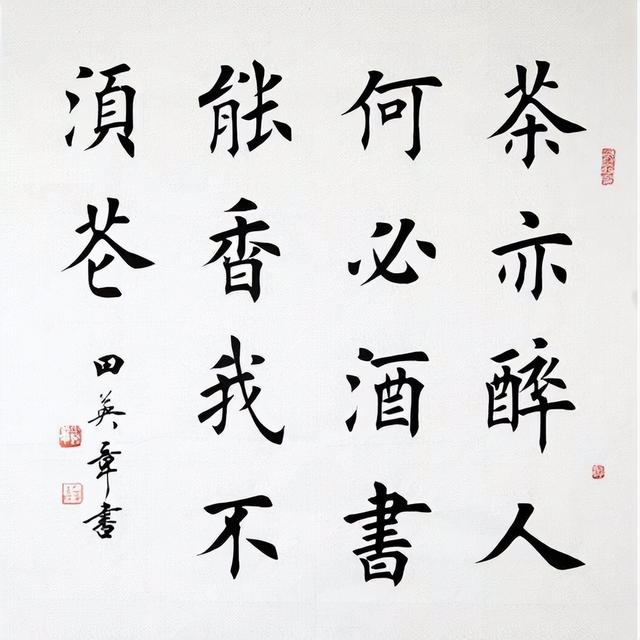 茶亦醉人
何必酒書
能香我不
須花
田英章書